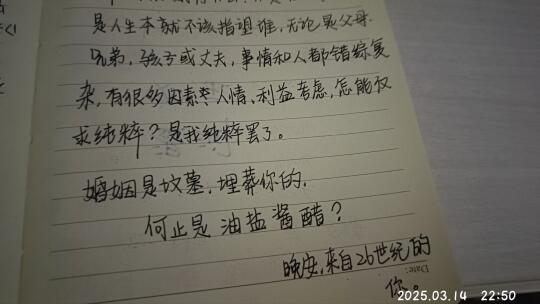 是人生本就不该指望谁，无论是父母
兄弟，孩子或丈夫，事情和人都错综复
杂，有很多因素、人情、利益考虑，怎能奴
求纯粹？是我纯粹罢了。
婚姻是坟墓，埋葬你的，
何止是油盐酱醋？
晚安，来自26世纪的
Date:
你。
2025.03.14 22:50